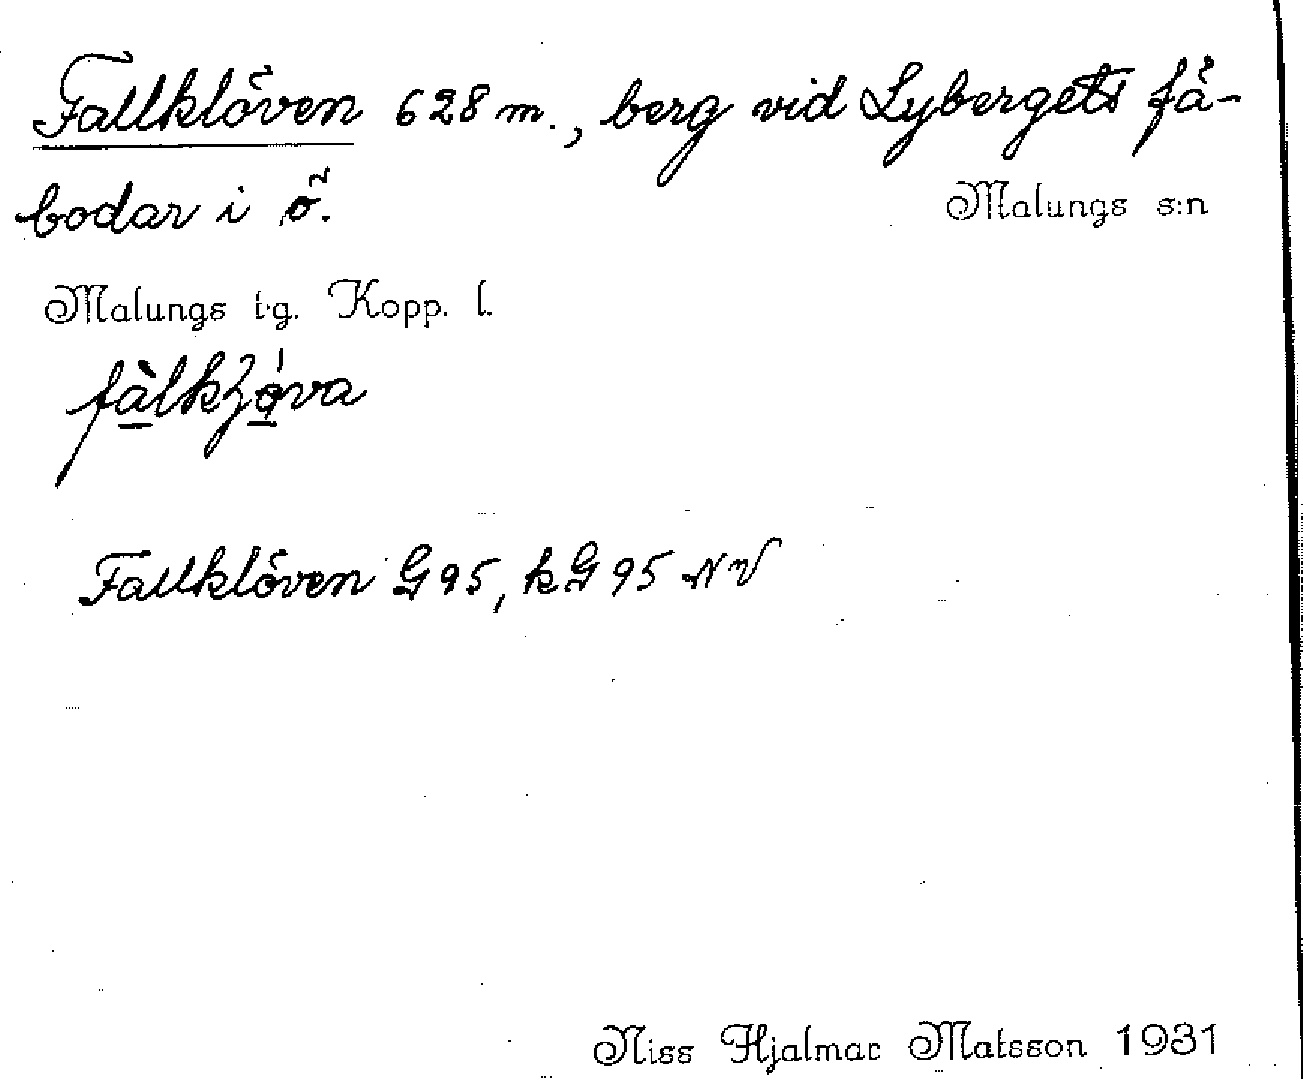 Fallklöven 628 m., berg vid Lybergets få-
bodar i ö.
Malungs s:n
Malungs t.g. Kopp. l.
Fallklöven G95, kG95 NV
Niss Hjalmar Matsson 1931